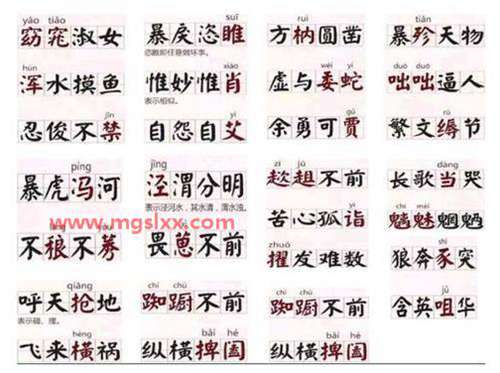 yǎo tiǎo suī ruì tiǎn
窈窕淑女 暴戾恣睢 方枘圆凿 暴殄天物
恣睢即任意做坏事。
hún xiāo wēi yí duō duō
浑水摸鱼 惟妙惟肖 虚与委蛇 咄咄逼人
表示相似。
jīn yì gǔ rù
忍俊不禁 自怨自艾 余勇可贾 繁文缛节
píng jīng zī jū dàng
暴虎冯河 泾渭分明 趑趄不前 长歌当哭
表示泾河水，其水清，渭水浊。
www.mgslxx.com
láng yǒu xǐ yì chī mèi
不稂不莠 畏葸不前 苦心孤诣 魑魅魍魉
zhuó shǐ
擢发难数 狼奔豕突
qiāng chí chú chí chú jǔ
呼天抢地 踟蹰不前 踟蹰不前 含英咀华
表示碰、撞。
hèng bǎi hé bǎi hé
飞来横祸 纵横捭阖 纵横捭阖